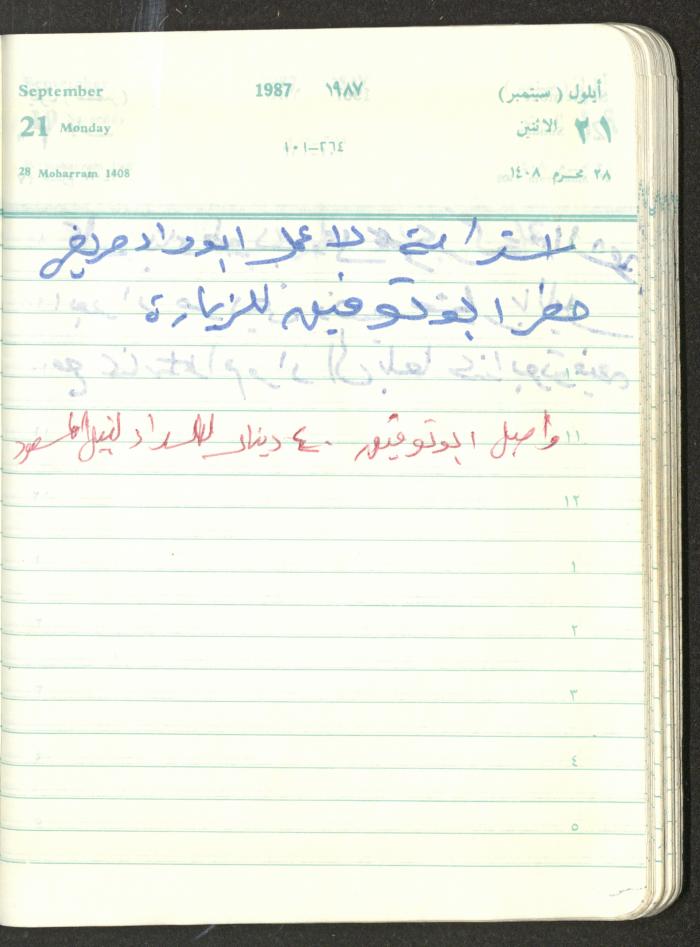 September 1987 ١٩٨٧ أيلول (سبتمبر)
21 Monday ٢٦٤-١٠١ الاثنين ٢١
28 Moharram 1408 ٢٨ محرم ١٤٠٨
استراحة لا عمل ابو مراد مريض
حضر ابو توفيق للزيارة
١١ واصل ابو توفيق ٤٠ دينار
١٢
١
٢
٣
٤
٥